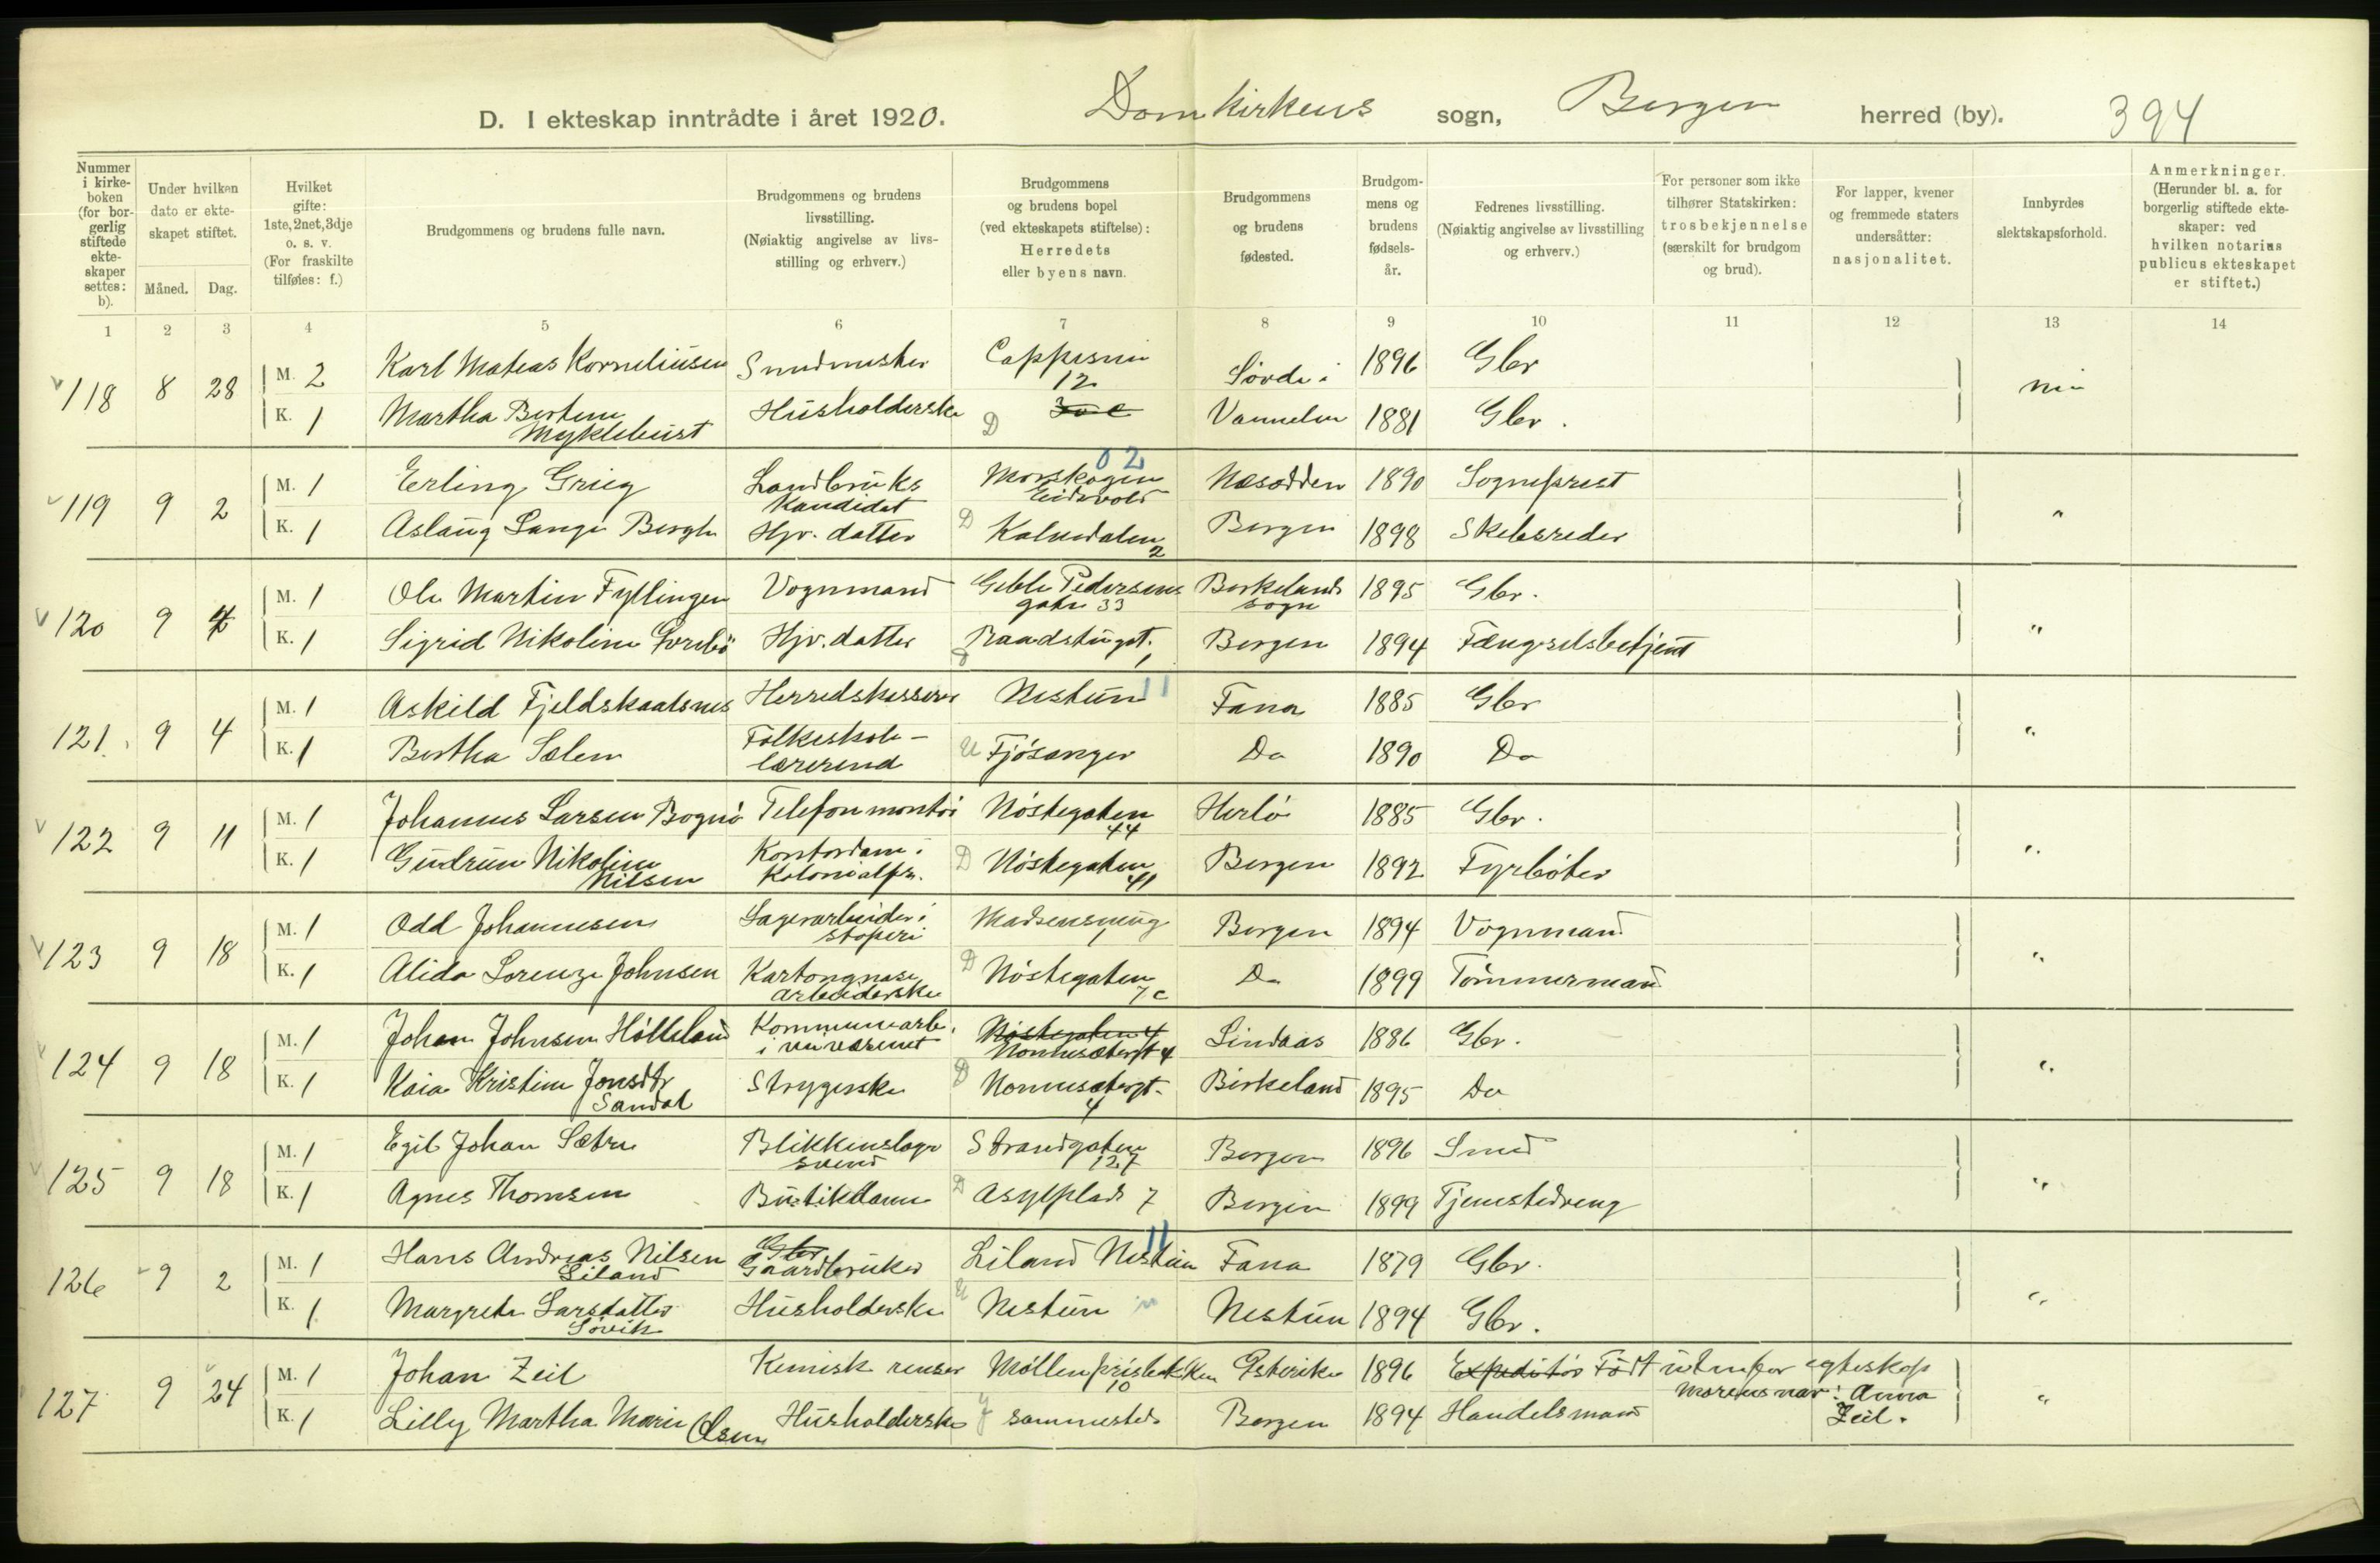 D. I ekteskap inntrådte i året 1920. Domkirkens sogn, Bergen herred (by). 394
Nummer i kirke-boken (for bor-gerlig stiftede ekte-skaper settes: b).
Under hvilken dato er ekte-skapet stiftet.
Måned. Dag.
Hvilket gifte: 1ste, 2net, 3dje o. s. v. (For fraskilte tilføies: f.)
Brudgommens og brudens fulle navn.
Brudgommens og brudens livsstilling. (Nøiaktig angivelse av livs-stilling og erhverv.)
Brudgommens og brudens bopel (ved ekteskapets stiftelse): Herredets eller byens navn.
Brudgommens og brudens fødested.
Brudgom-mens og brudens fødsels-år.
Fedrenes livsstilling. (Nøiaktig angivelse av livsstilling og erhverv.)
For personer som ikke tilhører Statskirken: trosbekjennelse (særskilt for brudgom og brud).
For lapper, kvener og fremmede staters undersåtter: nasjonalitet.
Innbyrdes slektskapsforhold.
Anmerkninger. (Herunder bl. a. for borgerlig stiftede ekte-skaper: ved hvilken notarius publicus ekteskapet er stiftet.)
1 2 3 4 5 6 7 8 9 10 11 12 13 14
118 8 28 M. 2 Karl Mateas Korneliusen 12 1896 Gbr
K. 1 Martha Bertine Myklebust Husholderske D 1881 Gbr.
02
119 9 2 M. 1 Erling Grieg Landbruks Kandidat Morskogen Eidsvold Næsodden 1890 Sogneprest
K. 1 Aslaug Lange Bergh Hjv. datter D Kalvedalen 2 Bergen 1898 Skibsreder "
120 9 4 M. 1 Ole Martin Fyllingen Vognmand Geble Pedersens gate 33 Birkelands sogn 1895 Gbr.
K. 1 Sigrid Nikoline Hjv. datter Raadstugt. 1 Bergen 1894 Fængselsbetjent "
121 9 4 M. 1 Askild Fjeldskaalsnes Herredskasserer Nestun 11 Fana 1885 Gbr
K. 1 Bertha Sælen Folkeskole-lærerind U Fjøsanger Do 1890 Do "
122 9 11 M. 1 Johannes Larsen Bognø Telefonmontør Nøstegaten 44 Herlø 1885 Gbr.
K. 1 Gudrun Nikoline Nilsen Kontordame i Kolonialfr. D Nøstegaten 41 Bergen 1892 Fyrbøter "
123 9 18 M. 1 Odd Johannesen Lagerarbeider i støperi Madsensmug 1 Bergen 1894 Vognmand
K. 1 Alida Lorenze Johnsen Kartongnage arbeiderske D Nøstegaten 7c Do 1899 Tømmermand "
124 9 18 M. 1 Johan Johnsen Hølleland Kommunearb. i renvæsenet Nøstegaten 4 Nonnesætergt 4 Lindaas 1886 Gbr.
K. 1 Kaia Kristine Jonsdtr Sandal Strygerske D Nonnesætergt. 4 Birkeland 1895 Do "
125 9 18 M. 1 Egil Johan Sætre Blikkenslager svend Strandgaten 127 Bergen 1896 Smed
K. 1 Agnes Thomsen Butikdame D Asylplads 7 Bergen 1899 Tjenestedreng "
126 9 2 M. 1 Hans Andreas Nilsen Liland Gbr Gaardbruker Liland Nestun 11 Fana 1879 Gbr.
K. 1 Margrete Larsdatter Søvik Husholderske U Nestun " Nestun 1894 Gbr. "
127 9 24 M. 1 Johan Zeil Kemisk renser Møllenprisbakken 10 Østerike 1896 Expeditør Født utenfor egteskap
K. 1 Lilly Martha Marie Olsen Husholderske sammesteds Bergen 1894 Handelsmand Morens navn: Anna Zeil. "